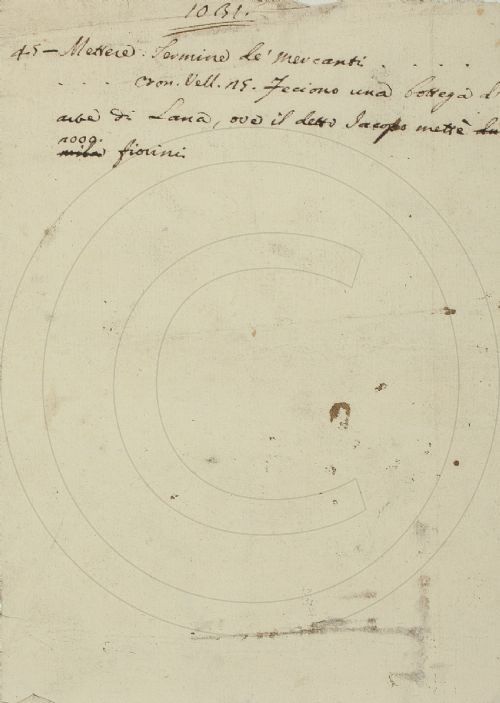 1031.
45 — Mettere. Termine de' Mercanti . . . . .
. . . . Cron. Vell. 15. Feciono una bottega d'
arte di Lana, ove il detto Jacopo mettè
2000.
fiorini